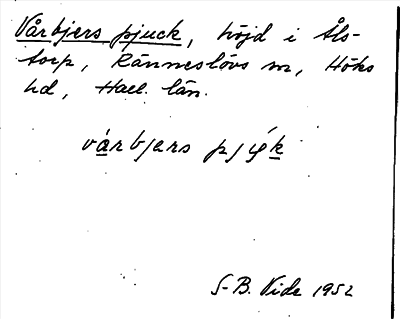 Vårbjers pjuck, höjd i Åls-
torp, Ränneslövs sn, Höks
hd, Hall. län.
vårbjers pjøk
S-B. Vide 1952